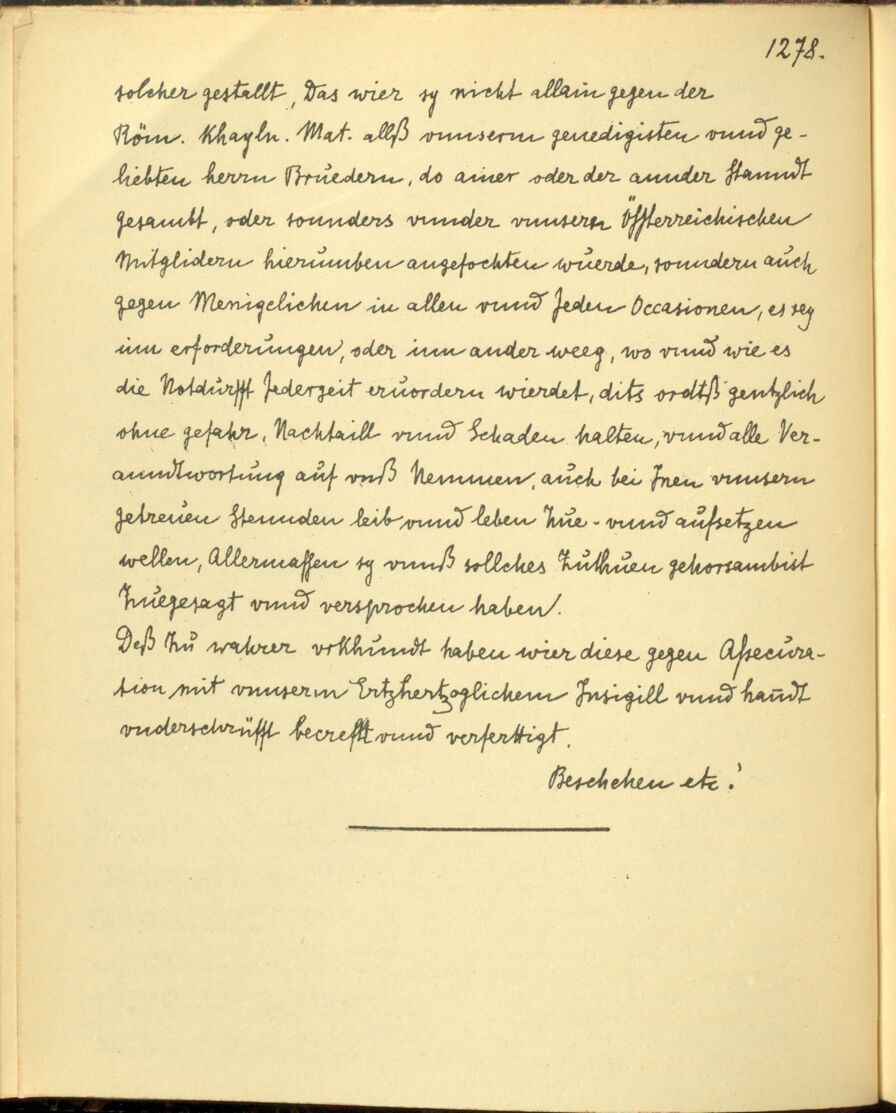 1278.
solcher gestallt, Das wier sy nicht allain gegen der
Röm. Khayln. Mat. allß vnnserm genedigisten vnnd ge-
liebten herrn Bruedern, do ainer oder der annder Stanndt
gesambt, oder sonnders vnnder vnnsern Össterreichischen
Mitglidern hierumben angefochten wuerde, sonndern auch
gegen Menigclichen in allen vnnd Jeden Occasionen, es sey
inn erforderungen, oder inn ander weeg, wo vnnd wie es
die Notdurfft Jederzeit eruordern wierdet, dits ordtß gentzlich
ohne gefahr, Nachtaill vnnd Schaden halten, vnnd alle Ver-
anndtwortung auf vnß Nemmen, auch bei Jnen vnnsern
getreuen Stennden leib vnnd leben Zue- vnnd aufsetzen
wellen, Allermassen sy vnnß sollches Zuthuen gehorsambist
Zuegesagt vnnd versprochen haben.
Deß Zu wahrer vrkhundt haben wier diese gegen Assecura-
tion mit vnnserm Ertzhertzoglichem Jnsigill vnnd hanndt
vnderschrüfft becrefftt vnnd verferttigt.
Beschehen etc.